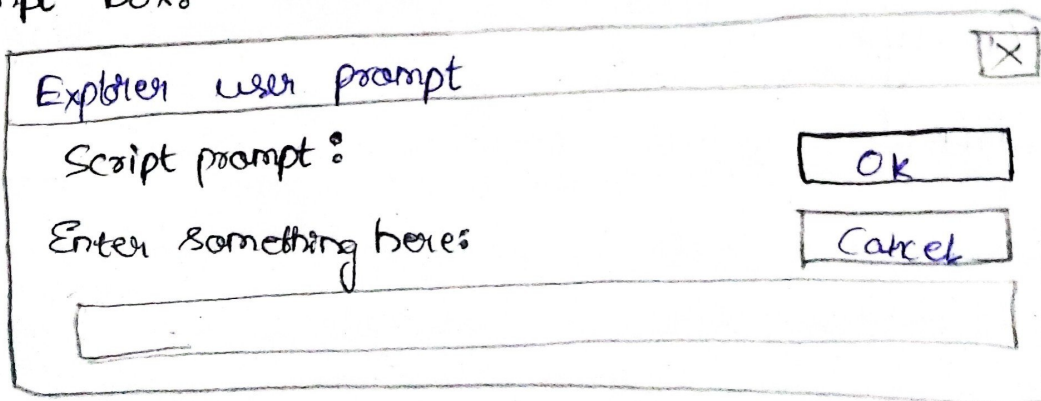 Box:
Explorer user prompt X
Script prompt:
OK
Enter something here:
Cancel